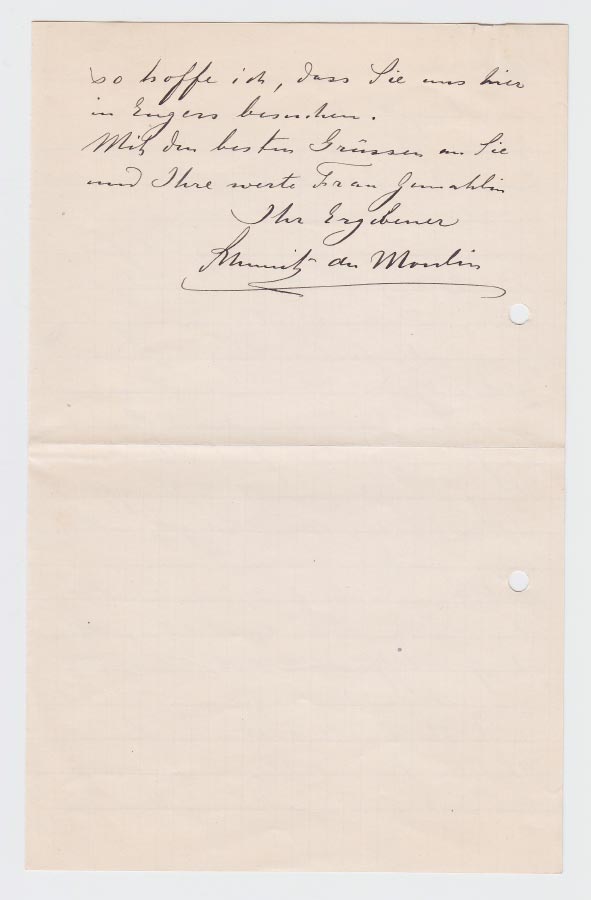 so hoffe ich, dass Sie uns hier
in Engers besuchen.
Mit den besten Grüssen an Sie
und Ihre werte Frau Gemahlin
Ihr Ergebener
Schmitz du Moulin